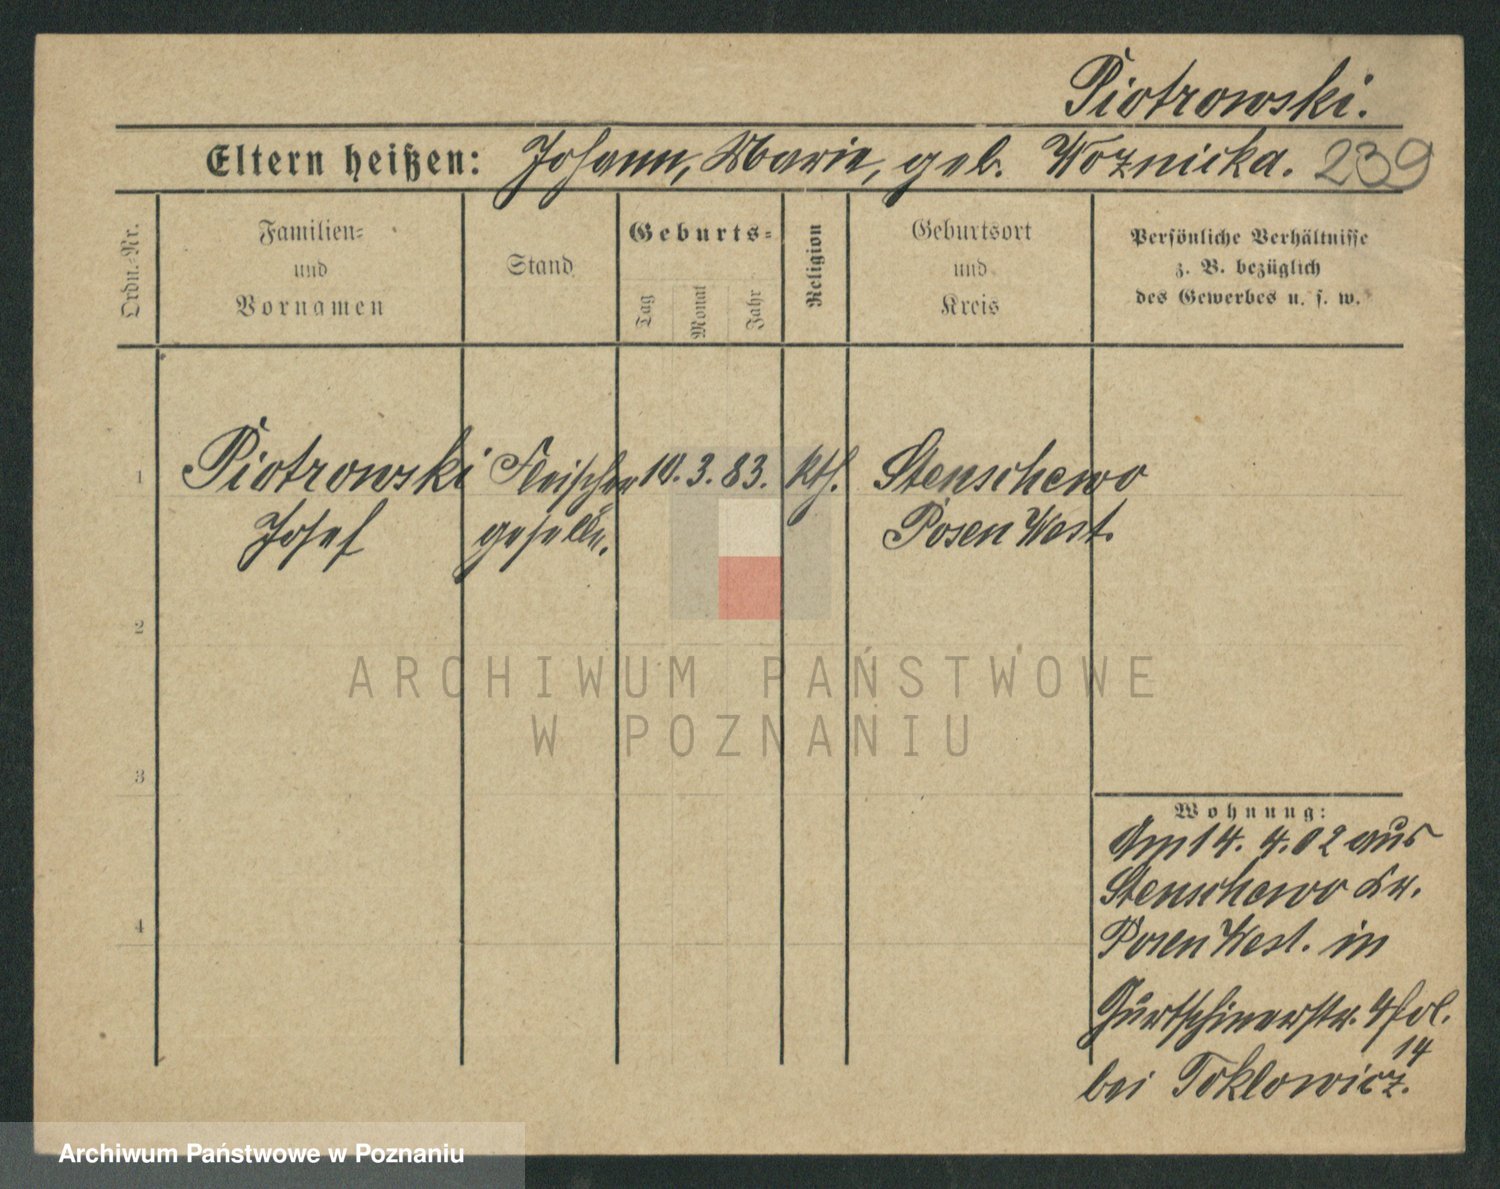 Piotrowski.
Eltern heißen: Johann, Marie, geb. Woznicka. 239
Ordn.-Nr.
Familien-
und
Vornamen
Stand
Geburts-
Tag
Monat
Jahr
Religion
Geburtsort
und
Kreis
Persönliche Verhältnisse
z. B. bezüglich
des Gewerbes u. s. w.
1 Piotrowski Fleischer 10. 3. 83. kth. Stenschewo
Josef geselle. Posen West.
2
ARCHIWUM PAŃSTWOWE
W POZNANIU
3
Wohnung:
Am 14. 4. 02 aus
Stenschewo Kr.
4
Posen West. in
Gurtschinerstr. 4
14
bei Toklowicz.
Archiwum Państwowe w Poznaniu